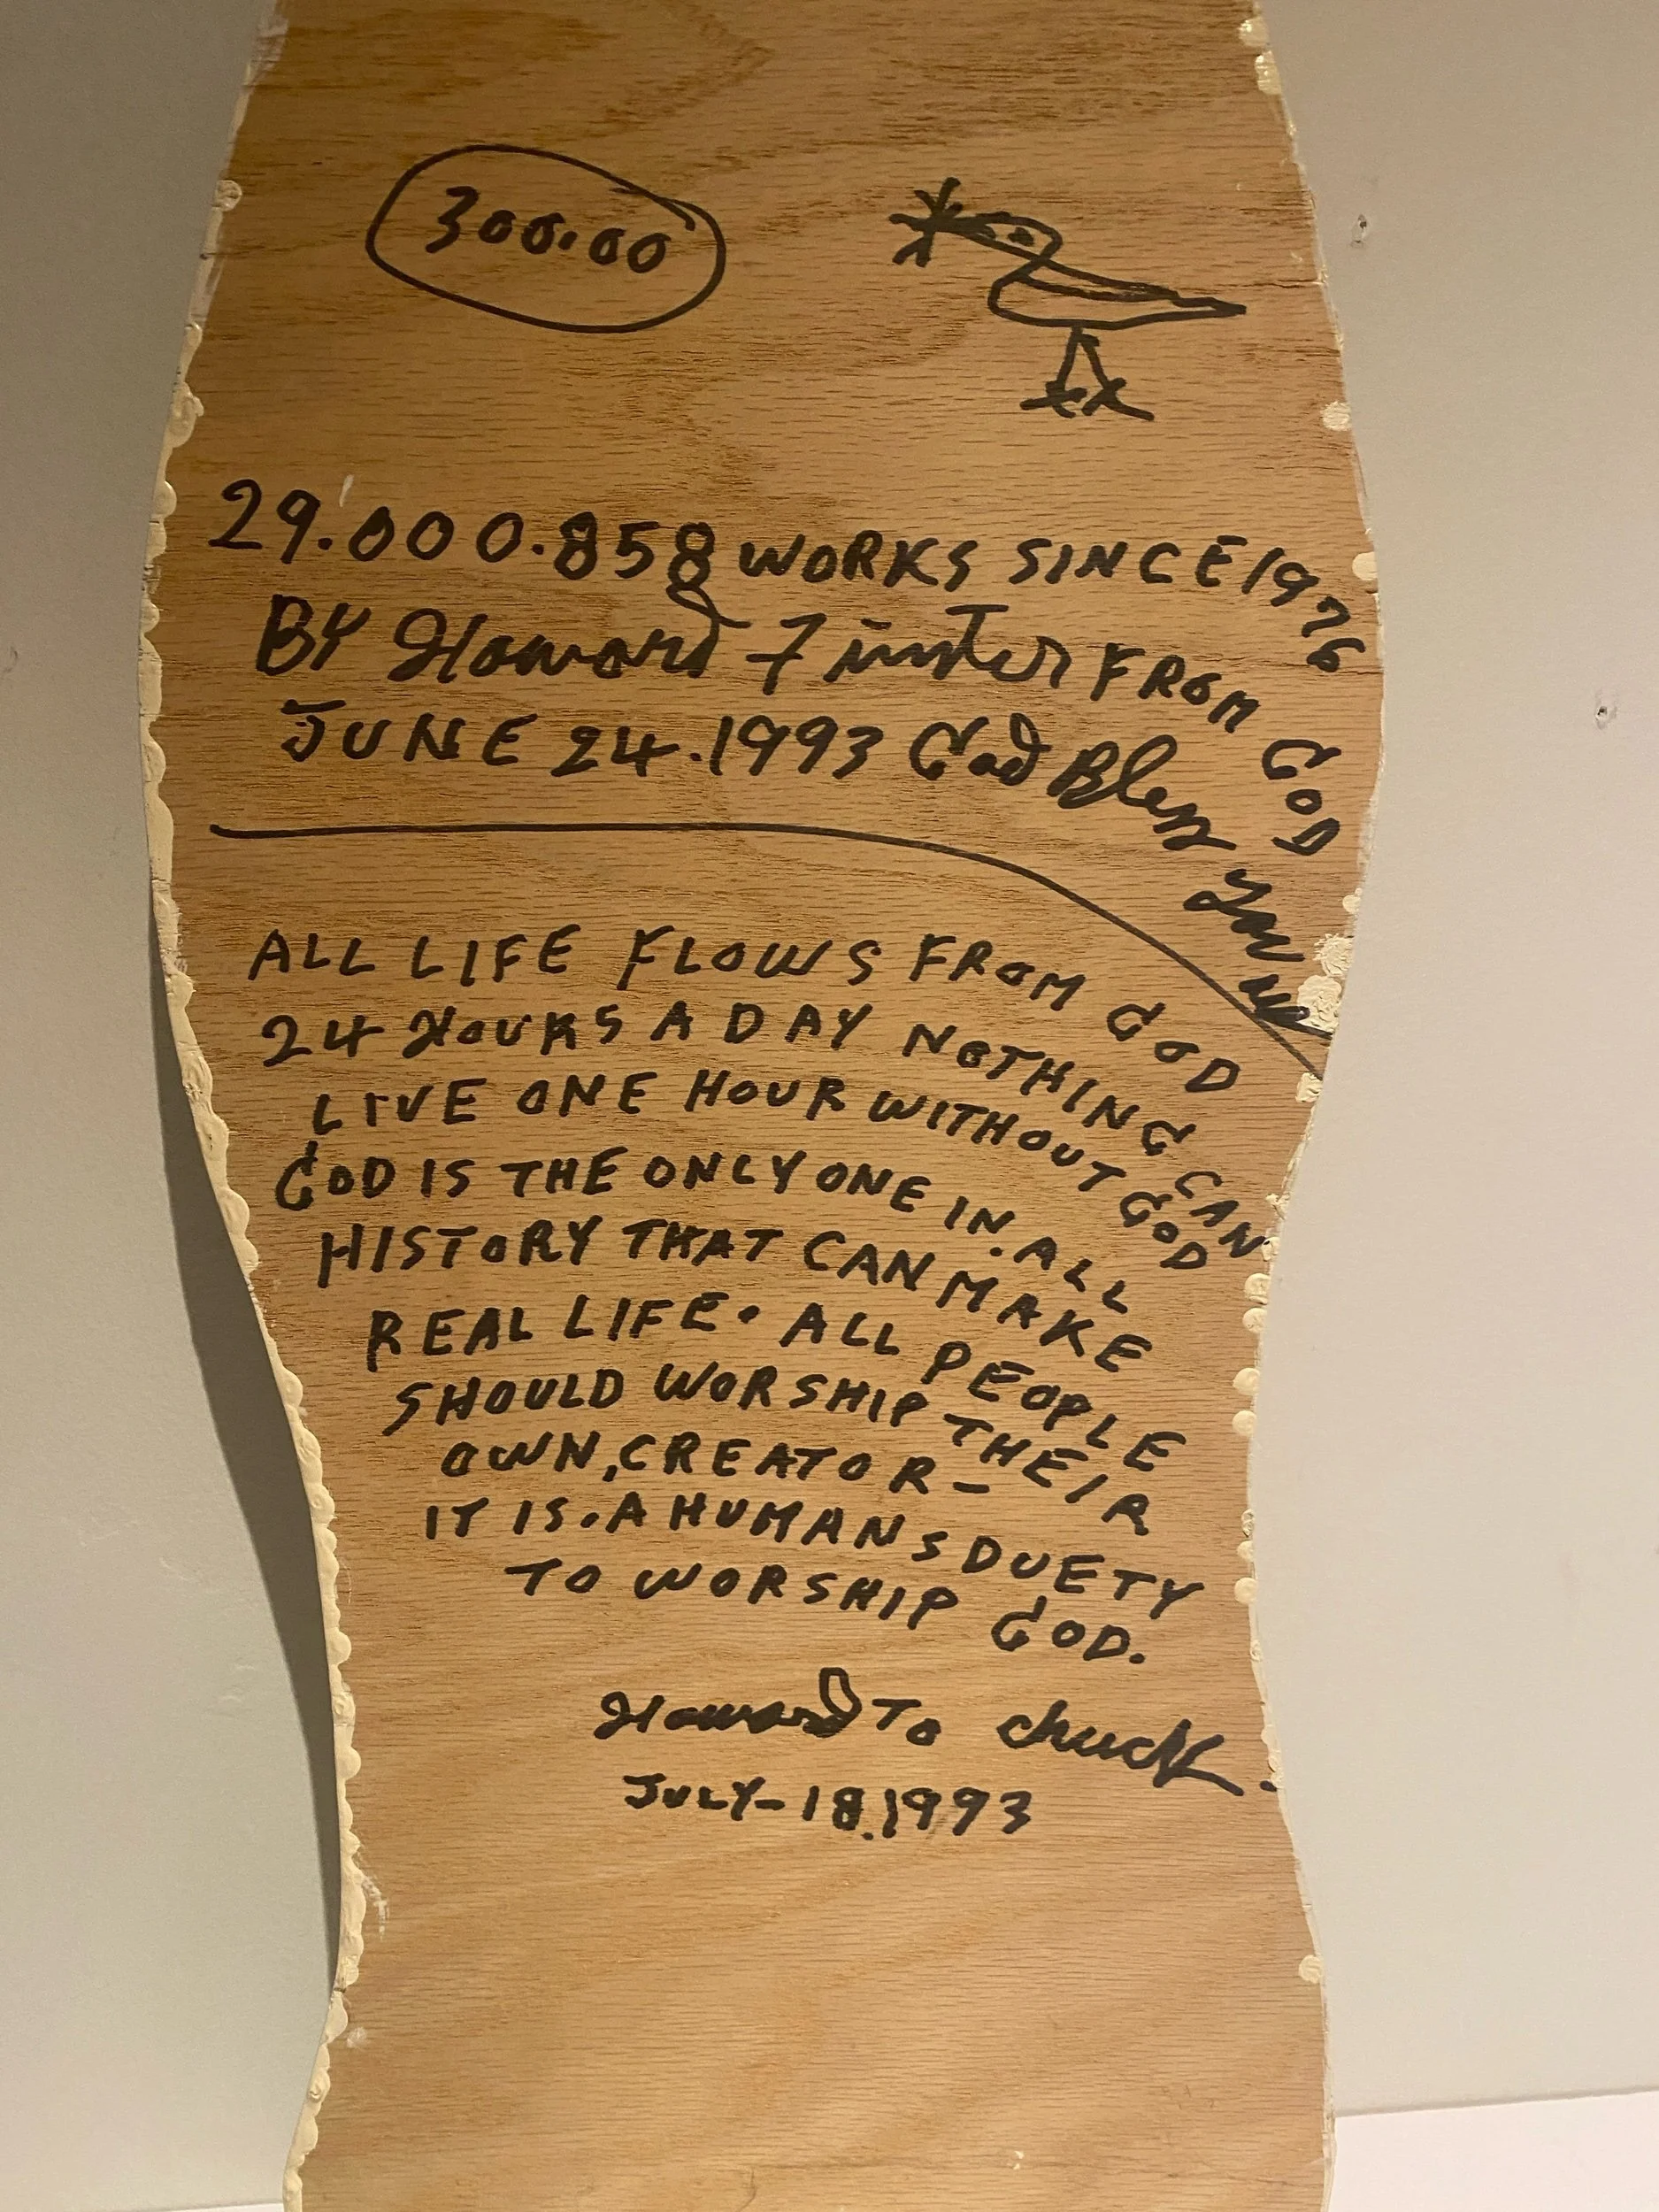 300.00
29.000.858 WORKS SINCE 1976
BY Howard Finster FROM GOD
JUNE 24.1993 God Bless you
ALL LIFE FLOWS FROM GOD
24 HOURS A DAY NOTHING CAN
LIVE ONE HOUR WITHOUT GOD
GOD IS THE ONLY ONE IN. ALL
HISTORY THAT CAN MAKE
REAL LIFE. ALL PEOPLE
SHOULD WORSHIP THEIR
OWN, CREATOR-
IT IS. A HUMANS DUETY
TO WORSHIP GOD.
Howard TO chuck.
JULY-18.1993